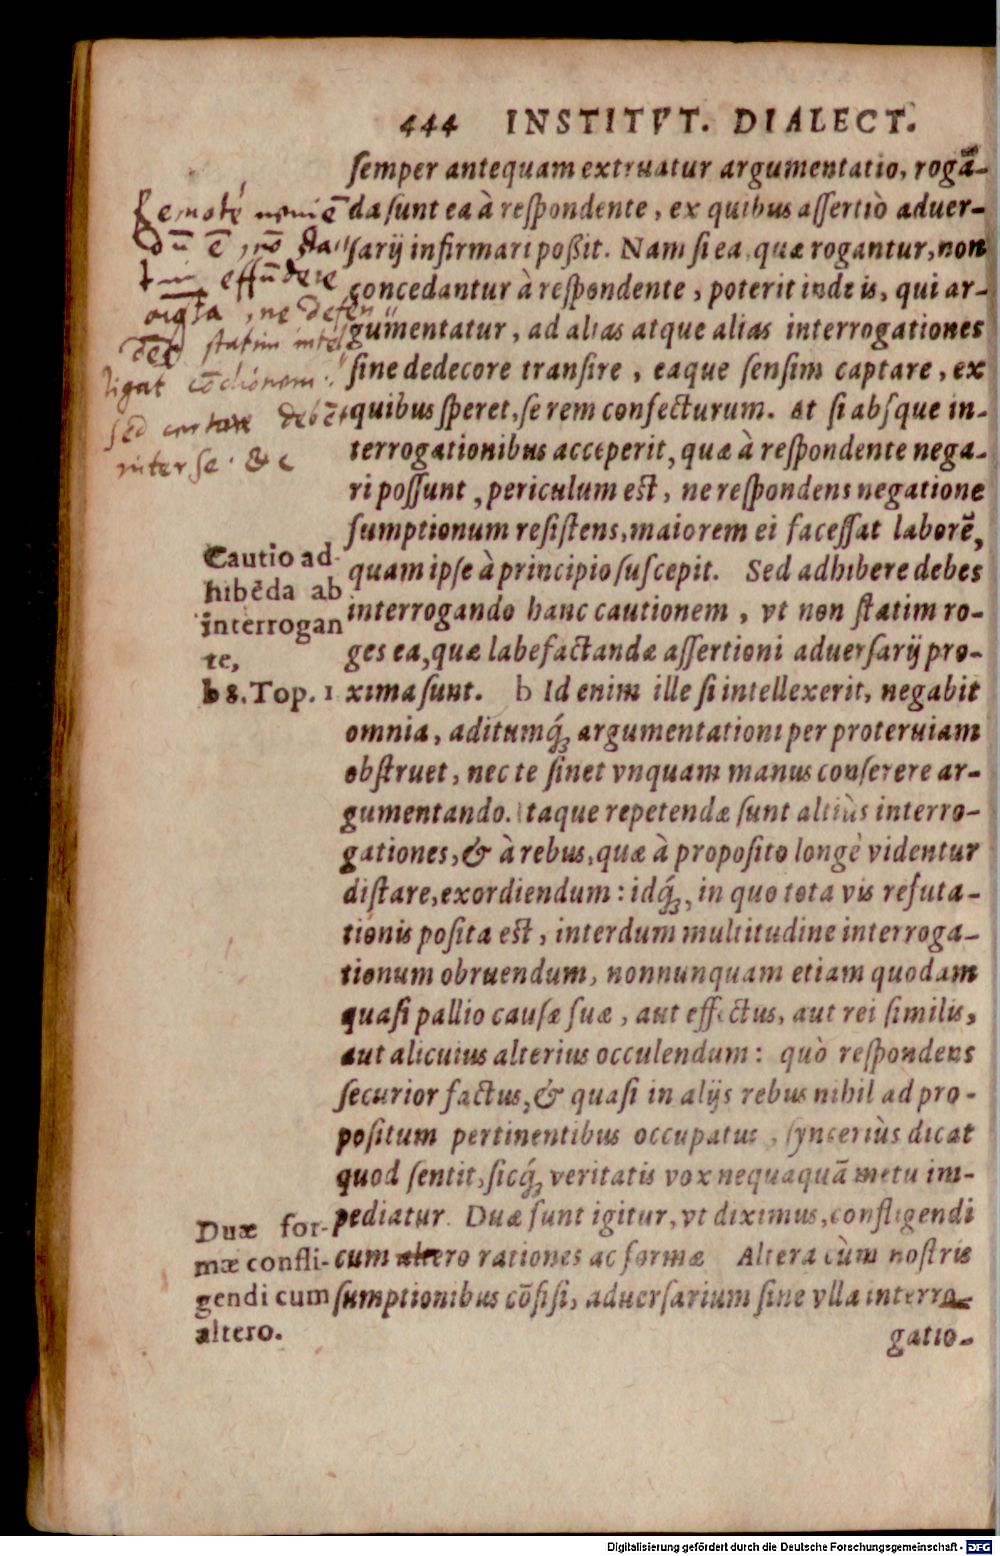 444 INSTITVT. DIALECT.
semper antequam extruatur argumentatio, rogā-
da sunt ea à respondente, ex quibus assertiò aduer-
sarij infirmari poßit. Nam si ea, quæ rogantur, non
concedantur à respondente, poterit inde is, qui ar-
gumentatur, ad alias atque alias interrogationes
sine dedecore transire, eaque sensim captare, ex
quibus speret, se rem confecturum. at si absque in-
terrogationibus acceperit, quæ à respondente nega-
ri possunt, periculum est, ne respondens negatione
sumptionum resistens, maiorem ei facessat laborē,
quam ipse à principio suscepit. Sed adhibere debes
interrogando hanc cautionem, vt non statim ro-
ges ea, quæ labefactandæ assertioni aduersarij pro-
xima sunt. b Id enim ille si intellexerit, negabit
omnia, aditumq́; argumentationi per proteruiam
obstruet, nec te sinet vnquam manus conserere ar-
gumentando. Itaque repetendæ sunt altiùs interro-
gationes, & à rebus, quæ à proposito longè videntur
distare, exordiendum: idq́;, in quo tota vis refuta-
tionis posita est, interdum multitudine interroga-
tionum obruendum, nonnunquam etiam quodam
quasi pallio causæ suæ, aut effectus, aut rei similis,
aut alicuius alterius occulendum: quò respondens
securior factus, & quasi in alijs rebus nihil ad pro-
positum pertinentibus occupatus, synceriùs dicat
quod sentit, sicq́; veritatis vox nequaquā metu im-
pediatur. Duæ sunt igitur, vt diximus, confligendi
cum altero rationes ac formæ Altera cùm nostris
sumptionibus cōfisi, aduersarium sine vlla interro-
gatio-
statim
ne
sed
debet
inter se. &c
Cautio ad-
hibēda ab
interrogan
te,
b 8. Top. 1
Duæ for-
mæ confli-
gendi cum
altero.
Digitalisierung gefördert durch die Deutsche Forschungsgemeinschaft - DFG